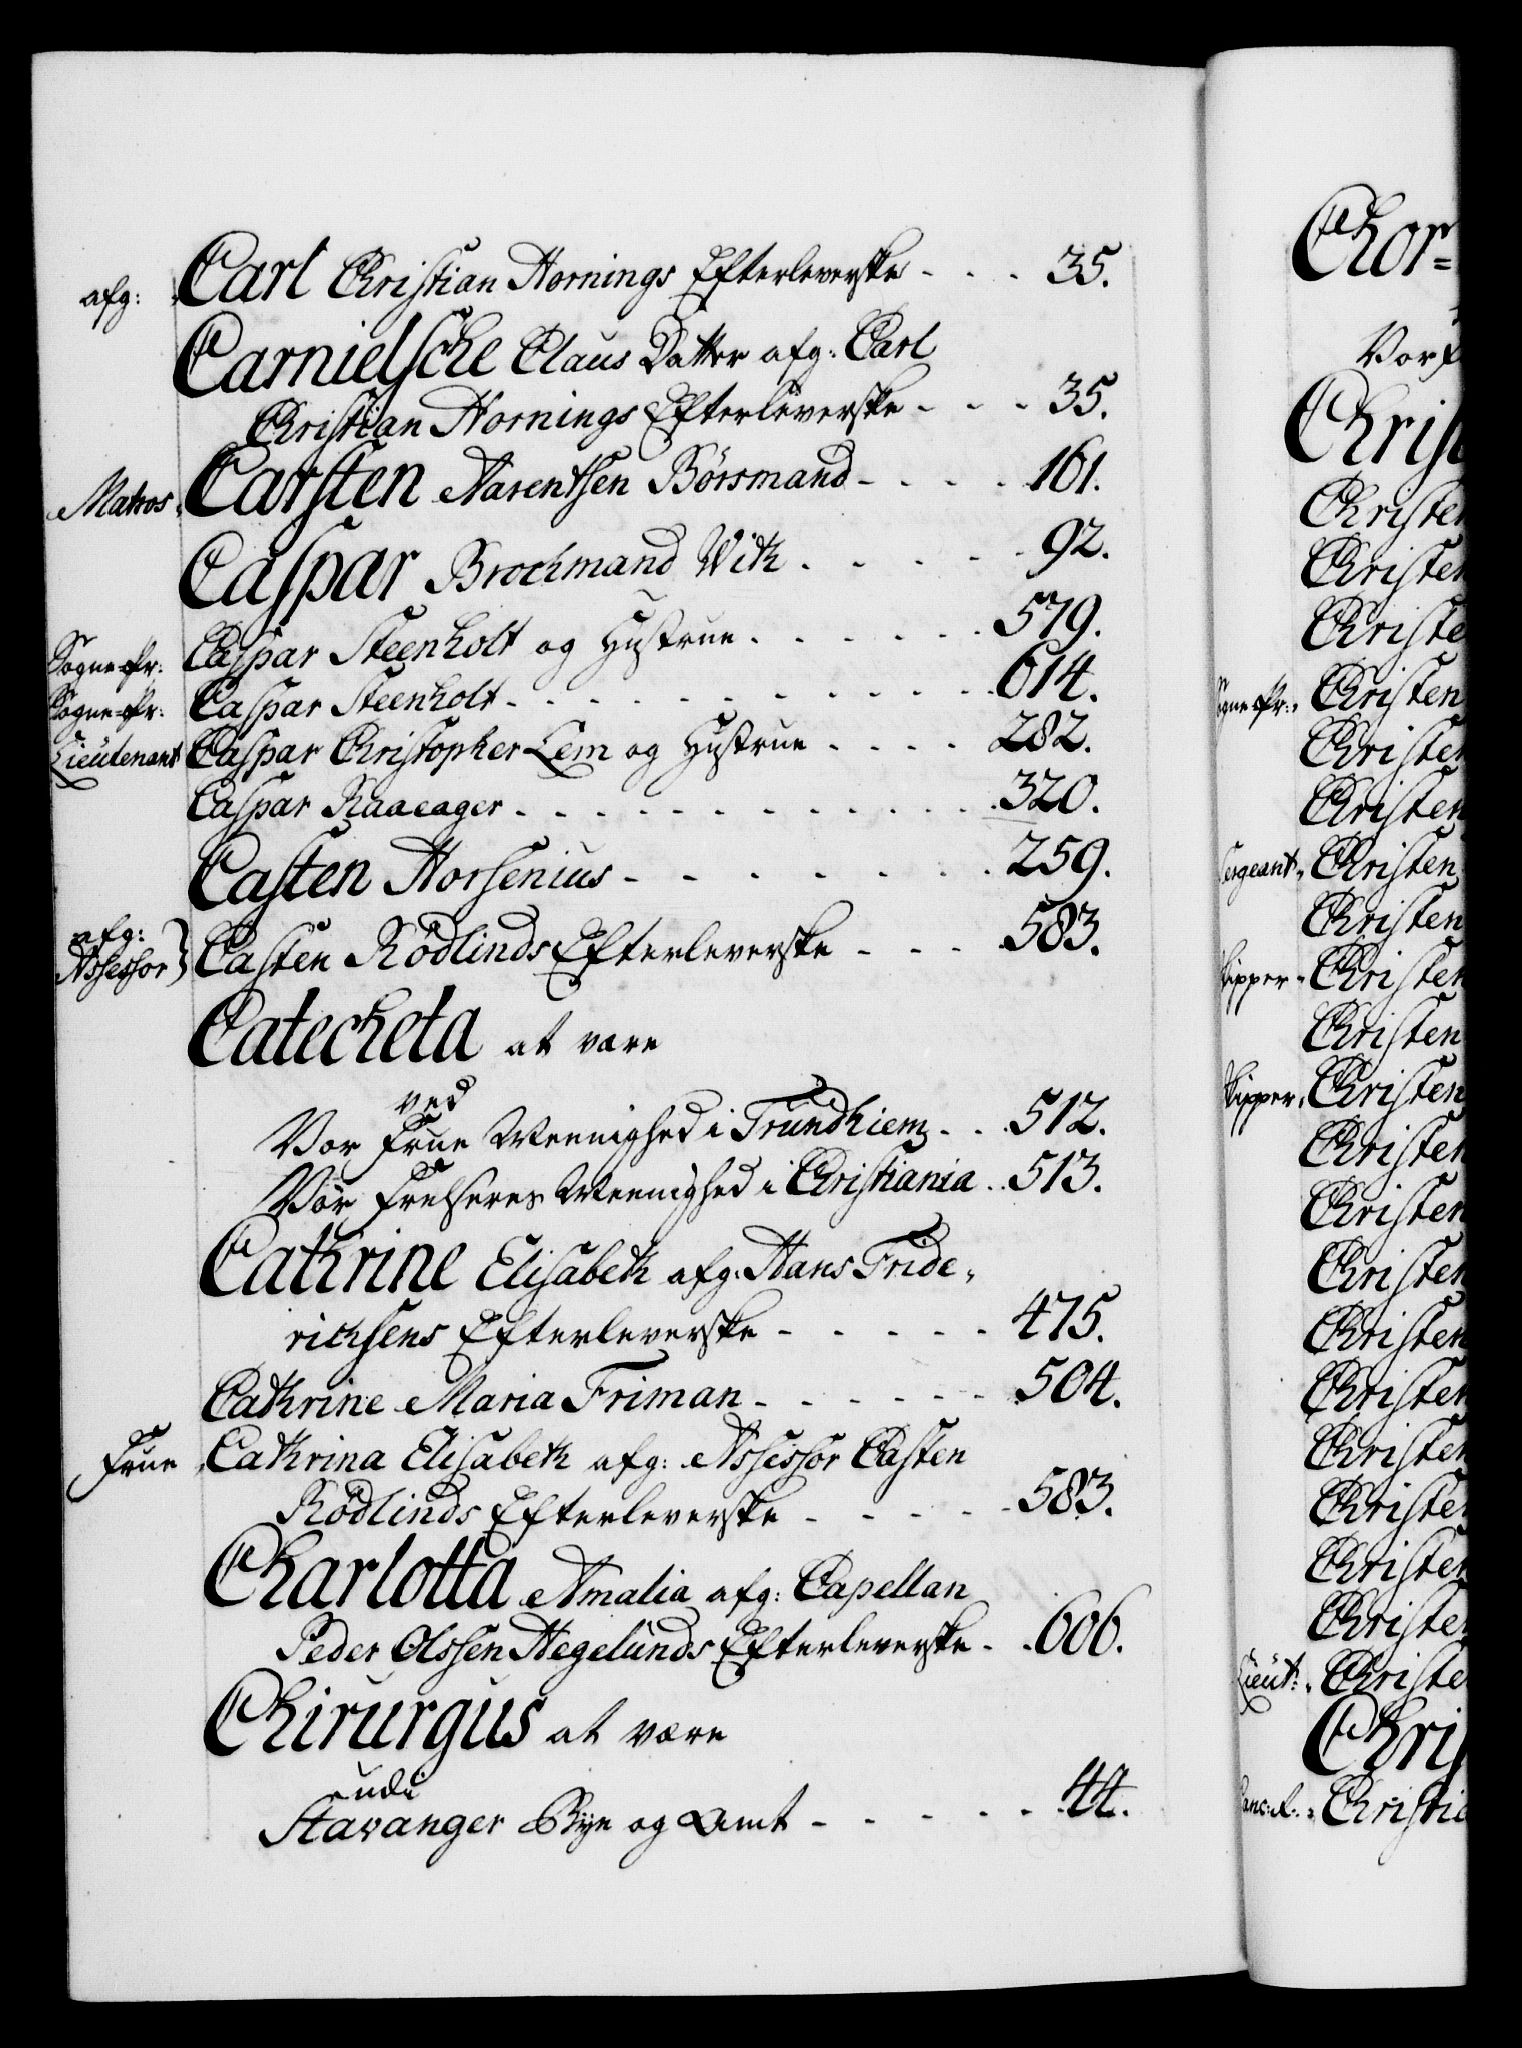 afg: Carl Christian Hornings Efterleverske - - - 35.
Carnielsche Claus Datter afg: Carl
Christian Hornings Efterleverske - - - 35.
Matros, Carsten Narentsen Börsmand - - - - 161.
Caspar Brochmand With . - - - - 92.
Sogne-Pr: Caspar Steenholt og Hustrue . - - - - - 579.
Sogne-Pr: Caspar Steenholt - - - - - - - - - - - 614.
Lieutenant Caspar Christopher Lem og Hustrue - - - - 282.
Caspar Raaeager - - - - - - - - - - - - 320.
Casten Horsenius - - - - - - - - 259.
afg:
Assessor} Casten Rödlinds Efterleverske - - - 583.
Catecheta at være
ved
Vor Frue Meenighed i Trundhiem - - - 512.
Vor Frelseres Meenighed i Christiania - - 513.
Cathrine Elisabeth afg: Hans Fride,
richsens Efterleverske - - - - - - 475.
Cathrine Maria Friman - - - - - - 504.
Frue Cathrina Elisabeth afg: Assessor Casten
Rödlinds Efterleverske - - - - - 583.
Charlotta Amalia afg: Capellan
Peder Olssen Hegelunds Efterleverske - - 606.
Chirurgus at være
udi
Stavanger Bye og Amt - - - - - - 44.
Chor=
Vor
Christ
Christen
Christen
Christe
Sogne Pr: Christen
Christen
Christen
Sergeant, Christen
Christen
Skipper, Christen
Christen
Skipper, Christen
Christen
Christen
Christen
Christen
Christen
Christen
Christen
Christen
Christen
Lieut:, Christe
Chris
Canc: R:, Christia